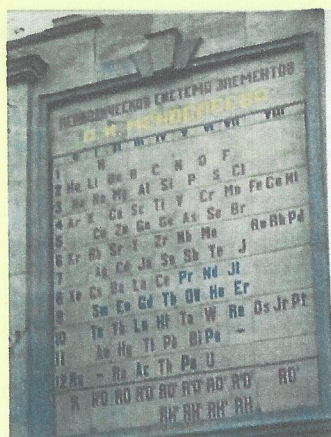 ПЕРИОДИЧЕСКАЯ СИСТЕМА ЭЛЕМЕНТОВ
Д. И. МЕНДЕЛЕЕВА
0 I II III IV V VI VII VIII
1 H
2 He Li Be B C N O F
3 Ne Na Mg Al Si P S Cl
4 Ar K Ca Sc Ti V Cr Mn Fe Co Ni
5 Cu Zn Ga Ge As Se Br
6 Kr Rb Sr Y Zr Nb Mo Ru Rh Pd
7 Ag Cd Jn Sn Sb Te J
8 Xe Cs Ba La Ce Pr Nd Jl
9 Sm Eu Gd Tb Ho Er
10 Tu Lu Ta W Re Os Jr Pt
11 Au Hg Tl Pb Bi Po -
12 Rn - Ra Ac Th Pa U
R R²O RO R²O³ RO² R²O⁵ RO³ R²O⁷ RO⁴
RH⁴ RH³ RH² RH